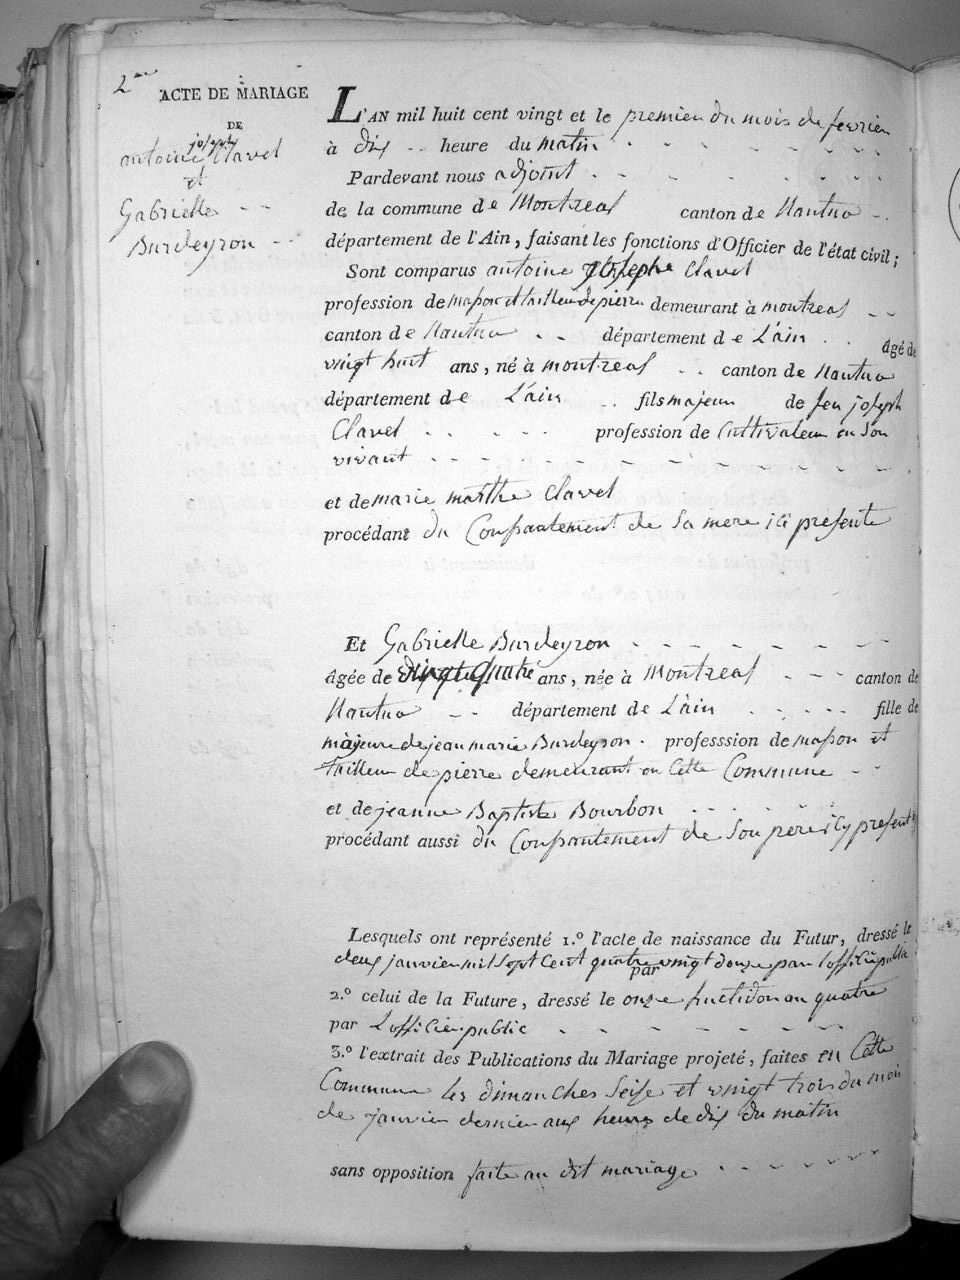 2me
ACTE DE MARIAGE
DE
joseph
antoine Clavel
et
Gabrielle
Burdeyron
L'AN mil huit cent vingt et le premier du mois de fevrier
à dix heure du matin
Pardevant nous adjoint
de la commune de Montreal canton de Nantua
département de l'Ain, faisant les fonctions d'Officier de l'état civil;
Sont comparus antoine joseph Clavel
profession de masson et tailleur de pierre demeurant à montreal
canton de Nantua département de L'ain âgé de
vingt huit ans, né à montreal canton de Nantua
département de L'ain fils majeur de feu joseph
Clavel profession de Cultivateur en son
vivant
et de marie marthe Clavel
procédant du Consantement de sa mere ici presente
Et Gabrielle Burdeyron
âgée de vingt quatre ans, née à Montreal canton de
Nantua département de L'ain fille de
majeure de jean marie Burdeyron professsion de masson et
tailleur de pierre demeurant en Cette Commune
et de jeanne Baptiste Bourbon
procédant aussi du Consantement de son pere icy present
Lesquels ont représenté 1.º l'acte de naissance du Futur, dressé le
deux janvier mil sept cent quatre vingt douze par l'officié public
par
2.º celui de la Future, dressé le onze fructidor an quatre
par L'officié public
3.º l'extrait des Publications du Mariage projeté, faites en Cette
Commune les dimanches seise et vingt trois du mois
de janvier dernier aux heures de dix du matin
sans opposition faite au dit mariage